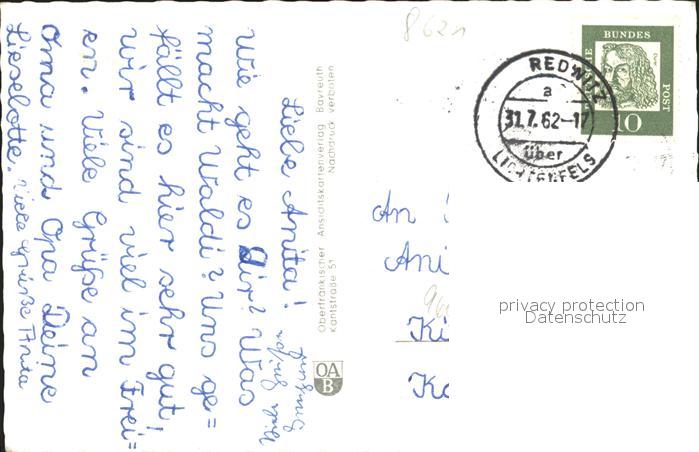 Liebe Anita!
Wie geht es Dir? Was
macht Waldi? Uns ge=
fällt es hier sehr gut,
wir sind viel im Frei=
en. Viele Grüße an
Oma und Opa Deine
Lieselotte. Viele Grüße Anita
Oberfränkischer Ansichtskartenverlag Bayreuth
Kantstraße 51 Nachdruck verboten
OA
B
862
DEUTSCHE BUNDESPOST
10
REDWITZ
a
31.7.62-17
über
LICHTENFELS
An
Ani
Ki
Ko
privacy protection
Datenschutz